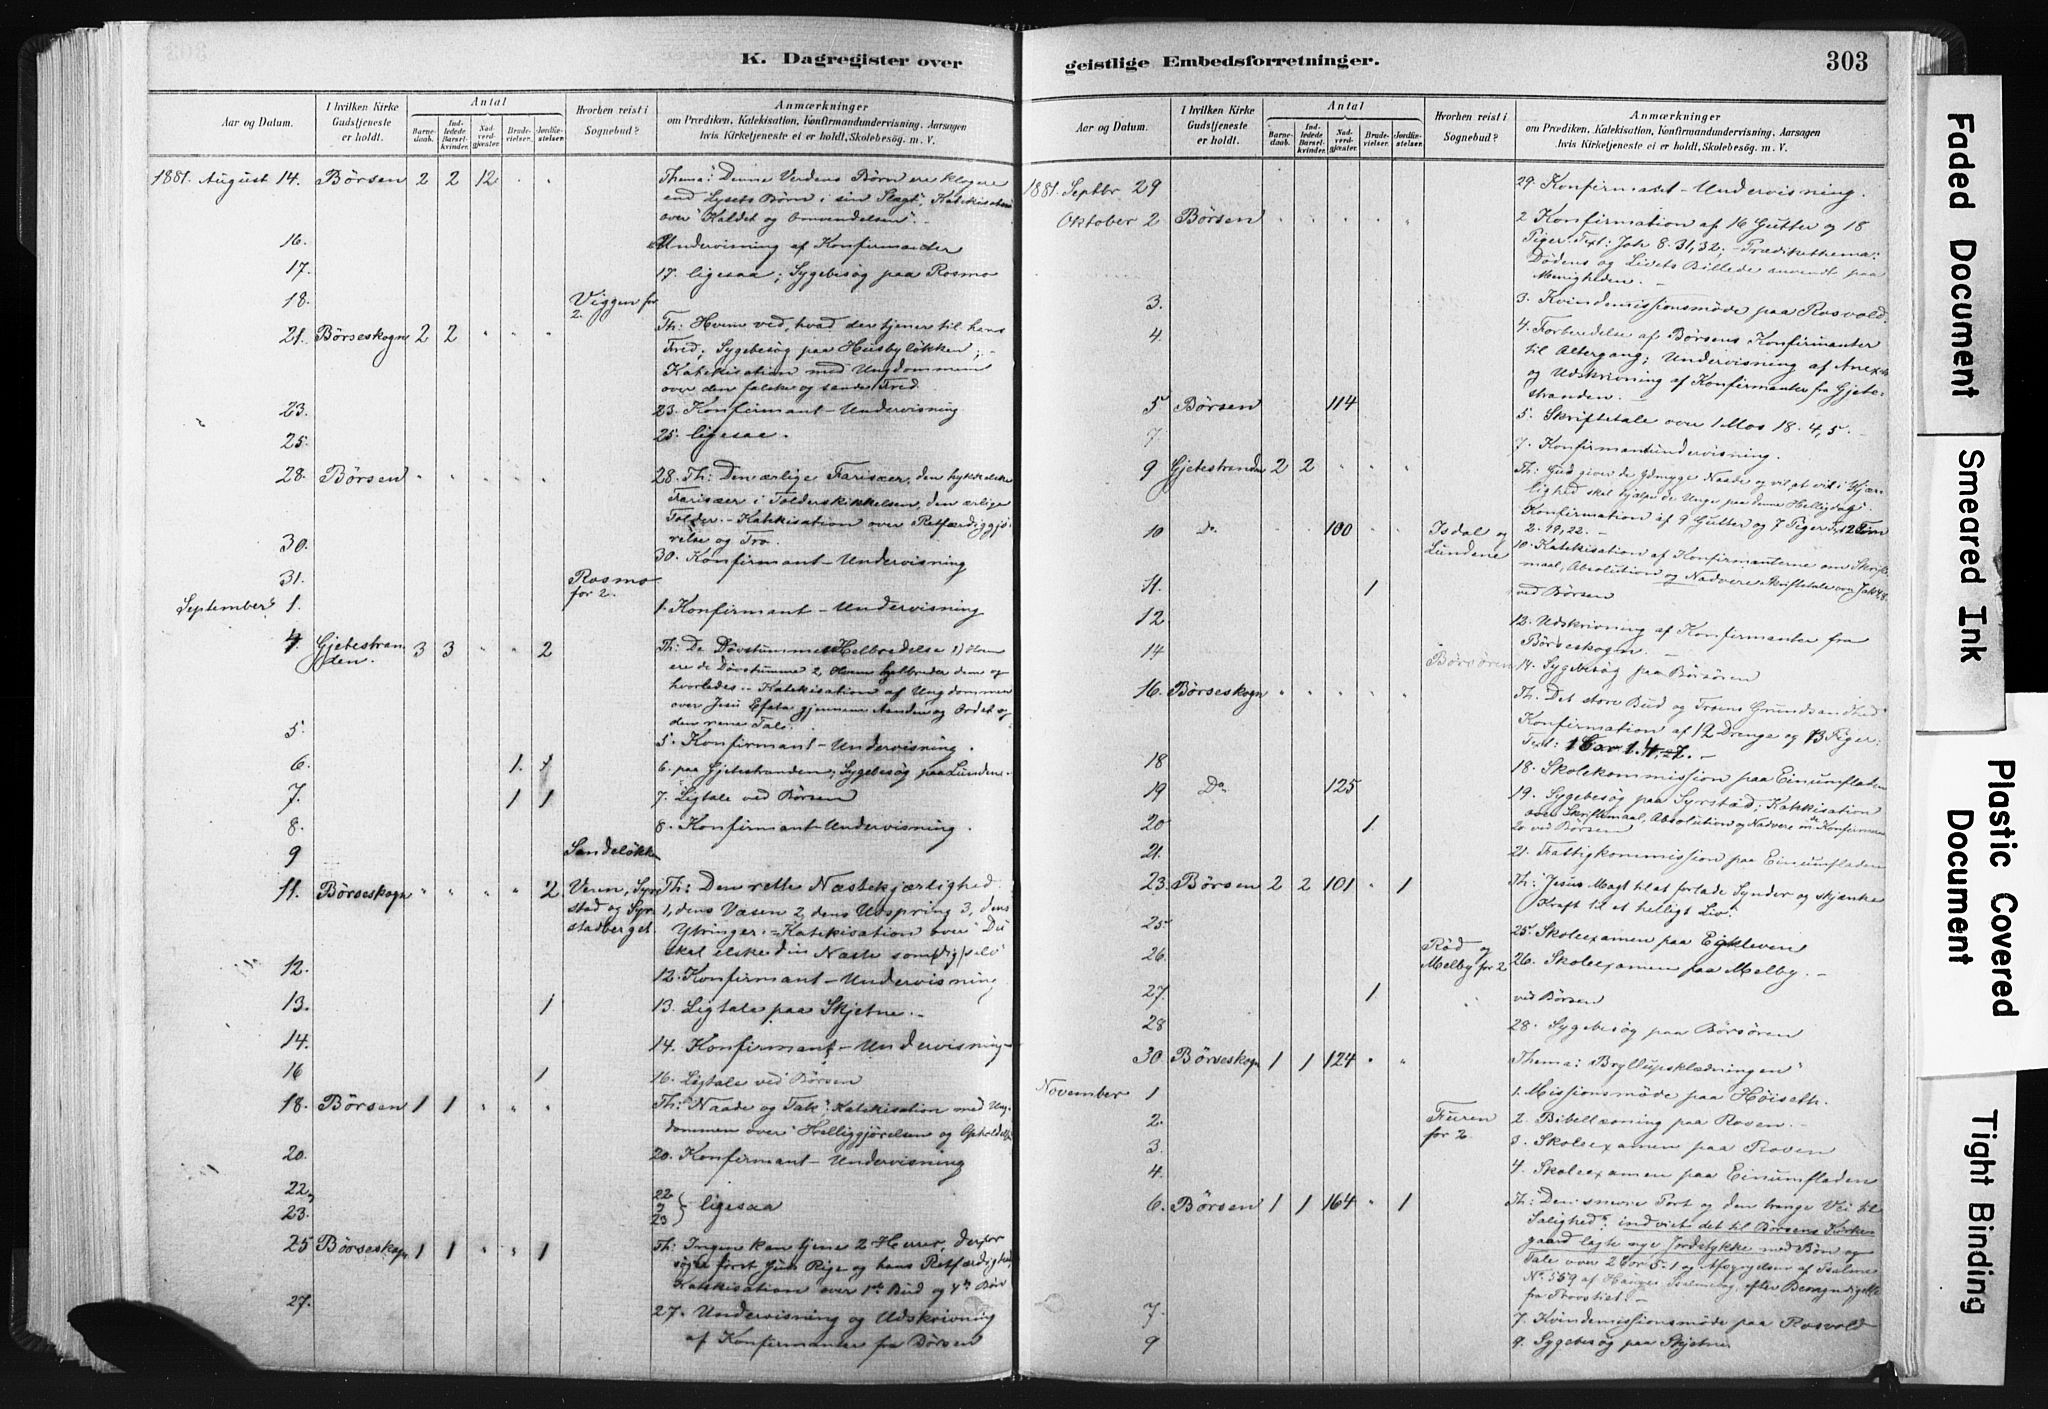 K. Dagregister over
Aar og Datum.
I hvilken Kirke Gudstjeneste er holdt.
Antal
Barnedaab.
Indledede Barselkvinder.
Nadverdgjæster.
Brudevielser.
Jordfæstelser.
Hvorhen reist i Sognebud?
Anmærkninger
om Prædiken, Katekisation, Konfirmandundervisning, Aarsagen
hvis Kirketjeneste ei er holdt, Skolebesøg. m. V.
1881. August 14. Børsen 2 2 12 Thema: Denne Verdens Børn ere klogere
end Lysets Børn i sin Slægt". Katekisation
over "Kaldet og Omvendelsen".
16. Undervisning af Konfirmanter
17. 17. ligesaa; Sygebesøg paa Rosmo
18. Viggen for
2.
21. Børseskogn 2 2 Th: Hvem ved, hvad der tjener til hans
Fred; Sygebesøg paa Husbyløkken;
Katekisation med Ungdommen
over den falske og sande Fred.
23. 23. Konfirmant-Undervisning
25. 25. ligesaa.
28. Børsen 28. Th: Den ærlige Farisæer, den hykkelske
Farisæer i Tolderskikkelsen, den ærlige
Tolder. - Katekisation over Retfærdiggjø-
relse og Tro.
30. 30. Konfirmant-Undervisning
31. Rosmo
for 2.
September 1. 1. Konfirmant-Undervisning
4. Gjetestran-
den. 3 3 2 Th: De Døvstummes Helbredelse 1) Hvem
ere de Døvstumme 2, Hvem helbreder dem og
hvorledes. - Katekisation af Ungdommen
over Jesu Efata gjennem Aanden og Ordet og
den rene Tale.
5. 5. Konfirmant-Undervisning.
6. 1. 1 6. paa Gjetestranden; Sygebesøg paa Lundene.
7. 1 1 7. Ligtale ved Børsen
8. 8. Konfirmant-Undervisning.
9 Sandeløkken
11. Børseskogn 2 Veren, Syr-
stad og Syr-
stadberget Th: Den rette Næstekjærlighed
1, dens Væsen 2, dens Udspring 3, dens
Ytringer. - Katekisation over "Du
skal elske din Næste som dig selv"
12. 12. Konfirmant-Undervisning
13. 1 13. Ligtale paa Skjetne.
14. 14. Konfirmant-Undervisning
16 1 16. Ligtale ved Børsen
18. Børsen 1 1 Th: "Naade og Tak". Katekisation med Ung-
dommen over "Helliggjørelsen og Opholdelse
20. 20. Konfirmant-Undervisning
22,
23. 22 23 } ligesaa
25 Børseskogn 1 1 1 Th: Ingen kan tjene 2 Herrer, derfor
søger først Guds Rige og hans Retfærdighed,
Katekisation over 1ste Bud og 4de Bøn
27. 27. Undervisning og Udskrivning
af Konfirmanter fra Børsen
geistlige Embedsforretninger.
303
Aar og Datum.
I hvilken Kirke Gudstjeneste er holdt.
Antal
Barnedaab.
Indledede Barselkvinder.
Nadverdgjæster.
Brudevielser.
Jordfæstelser.
Hvorhen reist i Sognebud?
Anmærkninger
om Prædiken, Katekisation, Konfirmandundervisning, Aarsagen
hvis Kirketjeneste ei er holdt, Skolebesøg. m. V.
1881. Septbr 29 29. Konfirmant-Undervisning.
Oktober 2 Børsen 2 Konfirmation af 16 Gutter og 18
Piger. Text: Joh 8. 31, 32. - Prædikethema:
Dødens og Livets Billede anvendt paa
Menigheden.
3. 3. Kvindemissionsmøde paa Rosvold.
4. 4. Forberedelse af Børsens Konfirmanter
til Altergang; Undervisning af Anexets
og Udskrivning af Konfirmanter fra Gjete-
stranden.
5 Børsen 114 5. Skriftetale over 1 Mos 18. 4, 5.
7. 7. Konfirmantundervisning.
9 Gjetestranden 2 2 Th: Gud giver de Ydmyge Naade og vil, at vi i Kjær-
lighed skal hjælpe de Unge paa denne Helligdag".
Konfirmation af 9 Gutter og 7 Piger. 2 Tim
2. 19, 22.
10 Do 100 Isdal og
Lundene 10. Katekisation af Konfirmanterne om Skrifte-
maal, Absolution og Nadvere. Skriftetale over Jak 4, 8.
11. 1 ved Børsen
12 12. Udskrivning af Konfirmanter fra
Børseskogn.
14 Børsøren 14. Sygebesøg paa Børsøren
16. Børseskogn Th: Det store Bud og Troens Grundsandhed"
Konfirmation af 12 Drenge og 13 Piger.
Text: 1 Cor 1. 4-7.
18 18. Skolekommission paa Einumfladen
19 Do 125 19. Sygebesøg paa Syrstad; Katekisation
over Skriftemaal, Absolution og Nadvere m Konfirmanterne
20 1. 20 ved Børsen
21. 21. Fattigkommission paa Einumfladen
23. Børsen 2 2 101 1 Th: Jesus Magt til at forlade Synder og skjænke
Kraft til et helligt Liv".
25. 25. Skoleexamen paa Eikleven
26. Rød og
Melby for 2 26. Skoleexamen paa Melby.
27. 1 ved Børsen
28 28. Sygebesøg paa Børsøren
30. Børseskogn 1 1 124 Thema: "Bryllupsklædningen"
November 1 1. Missionsmøde paa Høiseth.
2. Furen
for 2. 2. Bibellæsning paa Rosen.
3. 3. Skoleexamen paa Proven
4. 4. Skoleexamen paa Einumfladen
6. Børsen 1 1 164 1 Th: Den snevre Port og den trange Vei til
Salighed"; indviet det til Børsens Kirke-
gaard lagte nye Jordstykke med Bøn og
Tale over 2 Cor 5. 1 og Afsyngelsen af Psalme
No 569 af Hauges Psalmebog, efter Bemyndigelse
fra Provstiet.
7. 7. Kvindemissionsmøde paa Rosvold
9 9. Sygebesøg paa Skjetne
Faded Document
Smeared Ink
Plastic Covered
Document
Tight Binding